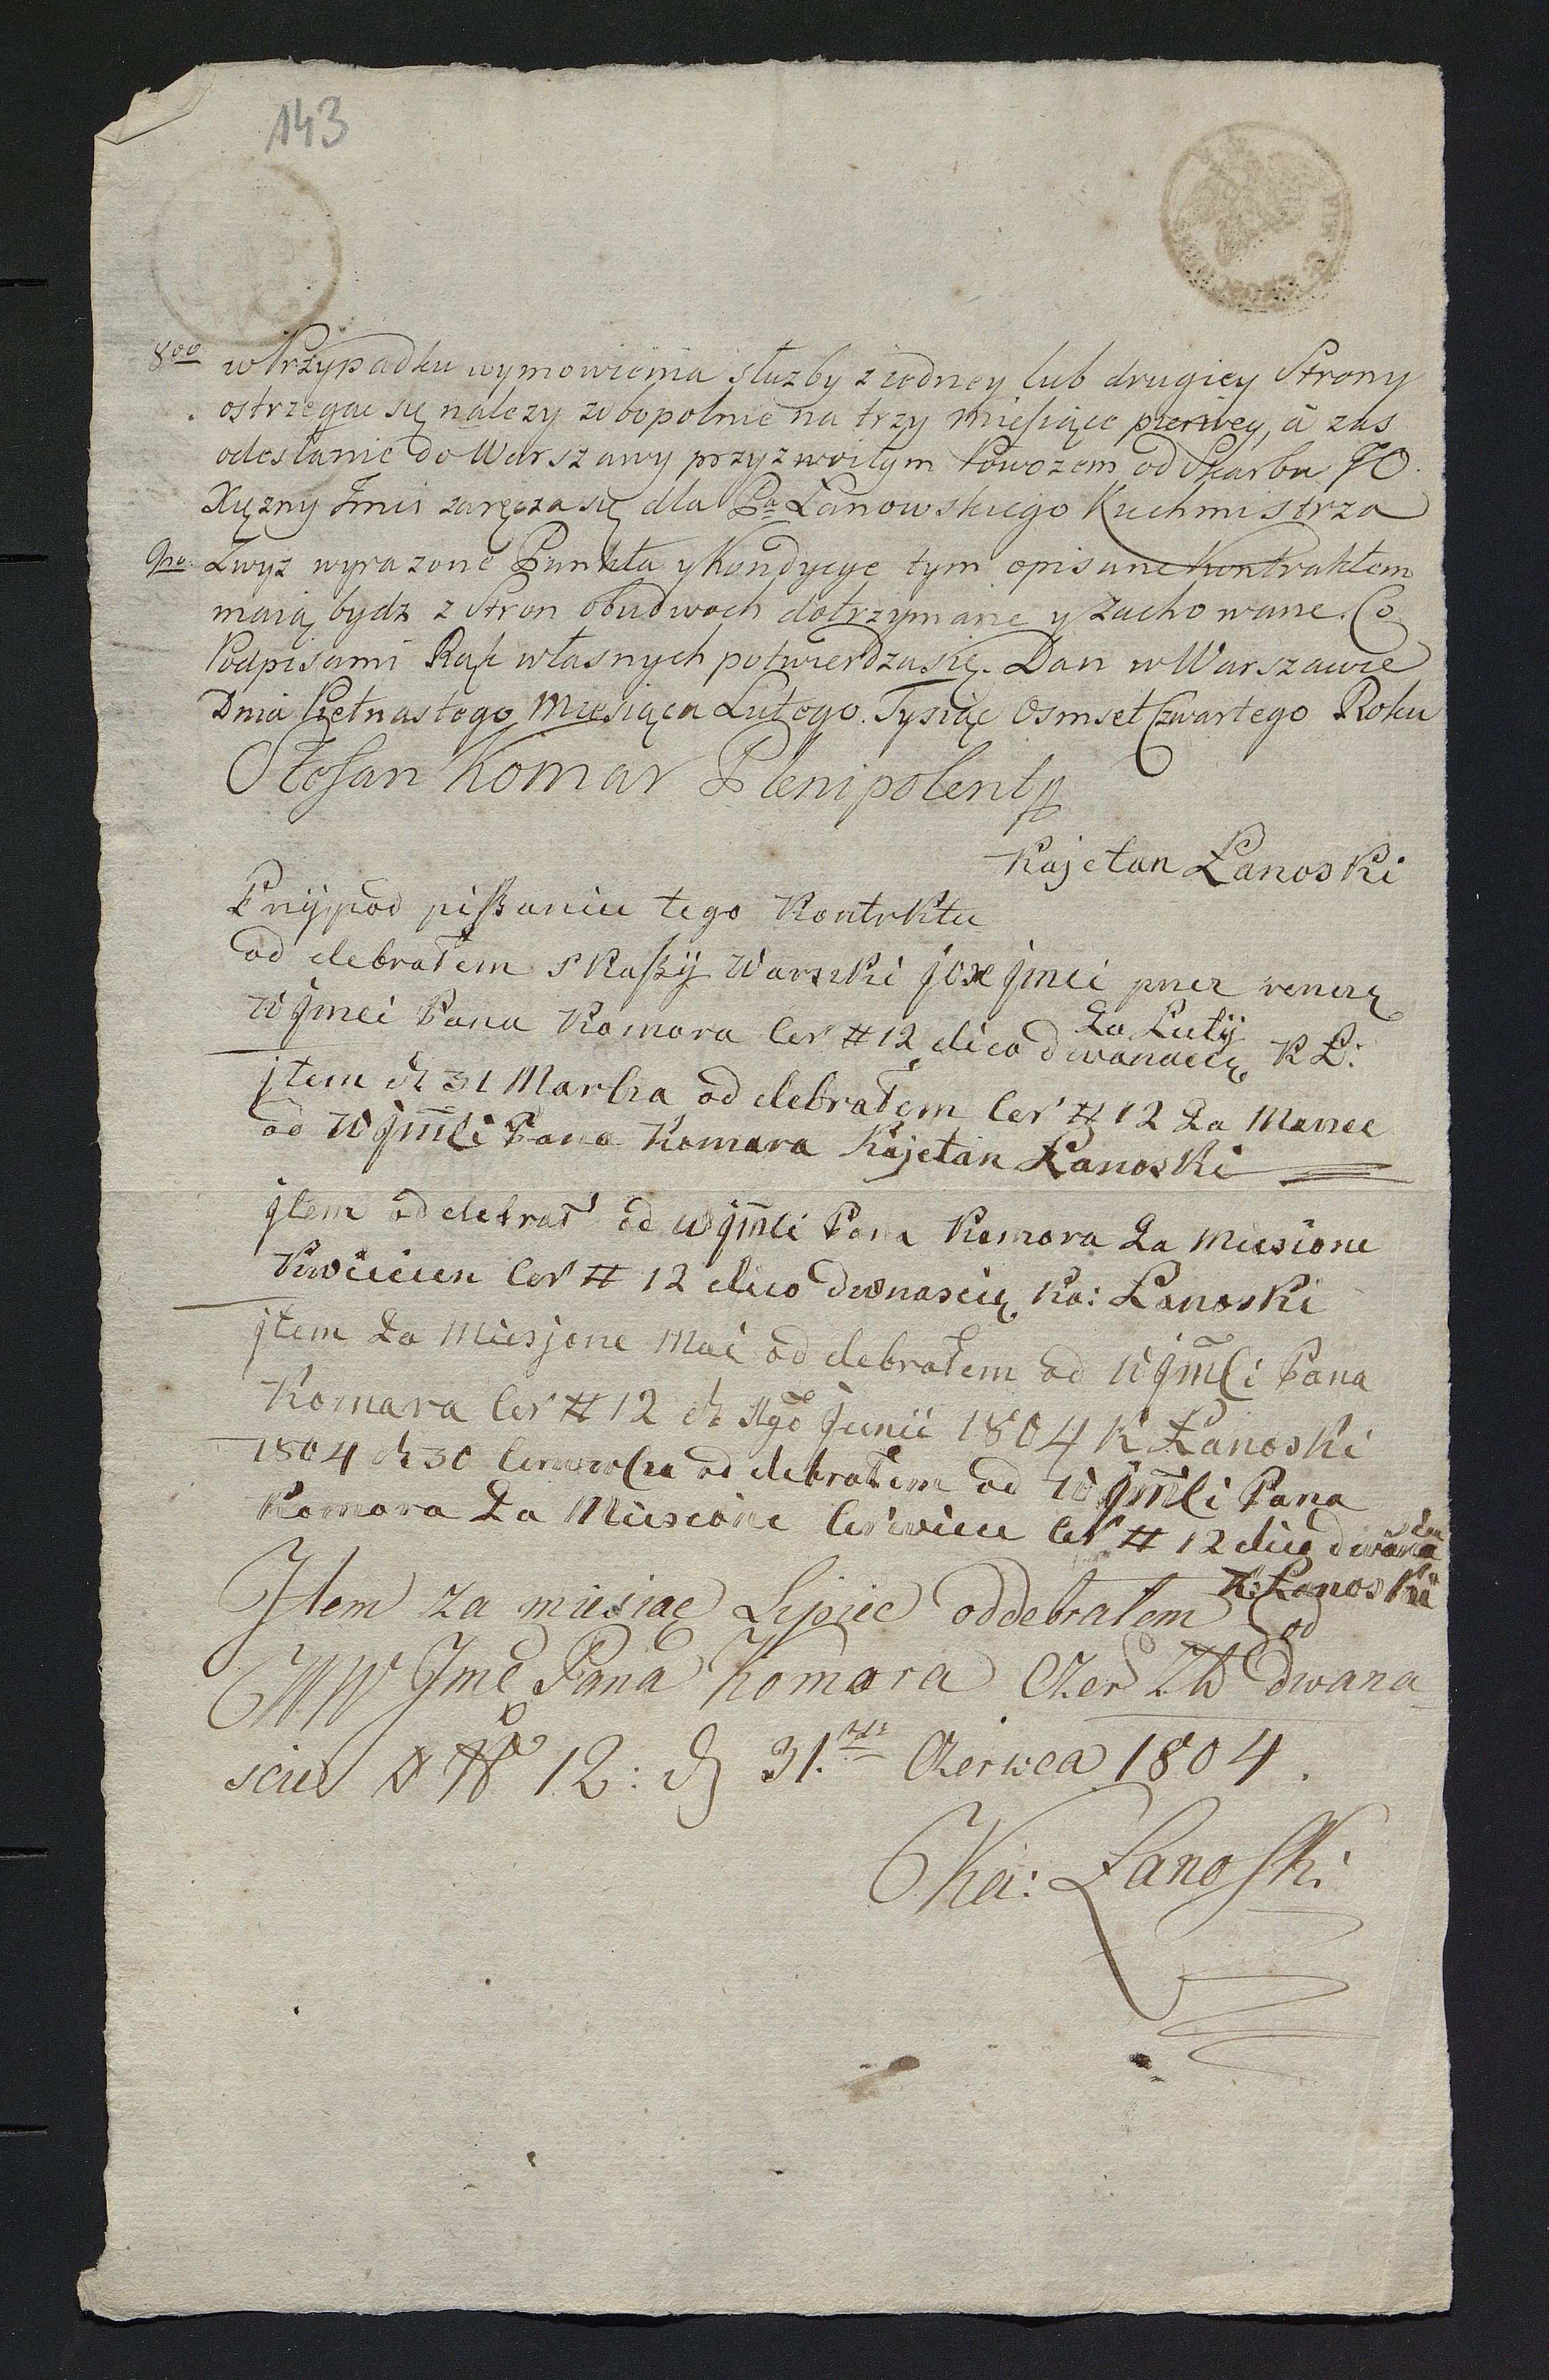 143
8vo w Przypadku wymowienia służby z iedney lub drugiey Strony
ostrzegac się nalezy zobopolnie na trzy miesiące pierwey, a zas
odesłanie do Warszawy przyzwoitym Powozem od Skarbu JO
Xiężny Jmci zaręcza się dla Pa Łanowskiego Kuchmistrza
9no. Zwyz wyrazone Punkta y Kondycye tym opisane Kontraktem
maią bydz z Stron obudwoch dotrzymane y zachowane. Co
Podpisami Rąk własnych potwierdza się. Dan w Warszawie
Dnia Piętnastego Miesiąca Lutego. Tysiąc Osmset Czwartego Roku
Stefan Komar Plenipotent
Kajetan Łanoski
Przy pod pissaniu tego Kontrktu
od debrałem s Kassy Warszki jox jmci przez rence
W jmci Pana Komora Cer # 12 dico dwanacie K Ł:
Za Luty
jtem d 31 Marca od debrałem Cer # 12 Za Marzec
od W jmCi Pana Komara Kajetan Łanoski
jtem od debrał od W jmCi Pana Komora Za Miesionc
Kwiecien Cer # 12 dico dwonascie Ka: Łanoski
jtem Za Miesjonc Mai od debrałem od W jmCi Pana
Komara Cer # 12 d 1go Junii 1804 K Łanoski
1804 d 30 Cerwca od debrałem od W jmCi Pana
Komora Za Miesionc Cerwiec Cer # 12 dico dwana
K: Łanoski
Jtem za miesiąc Lipiec oddebrałem od
JWW Jmć Pana Komora Czer Zł dwana
scie # 12: d 31. Czerwca 1804.
Ka: Łanoski